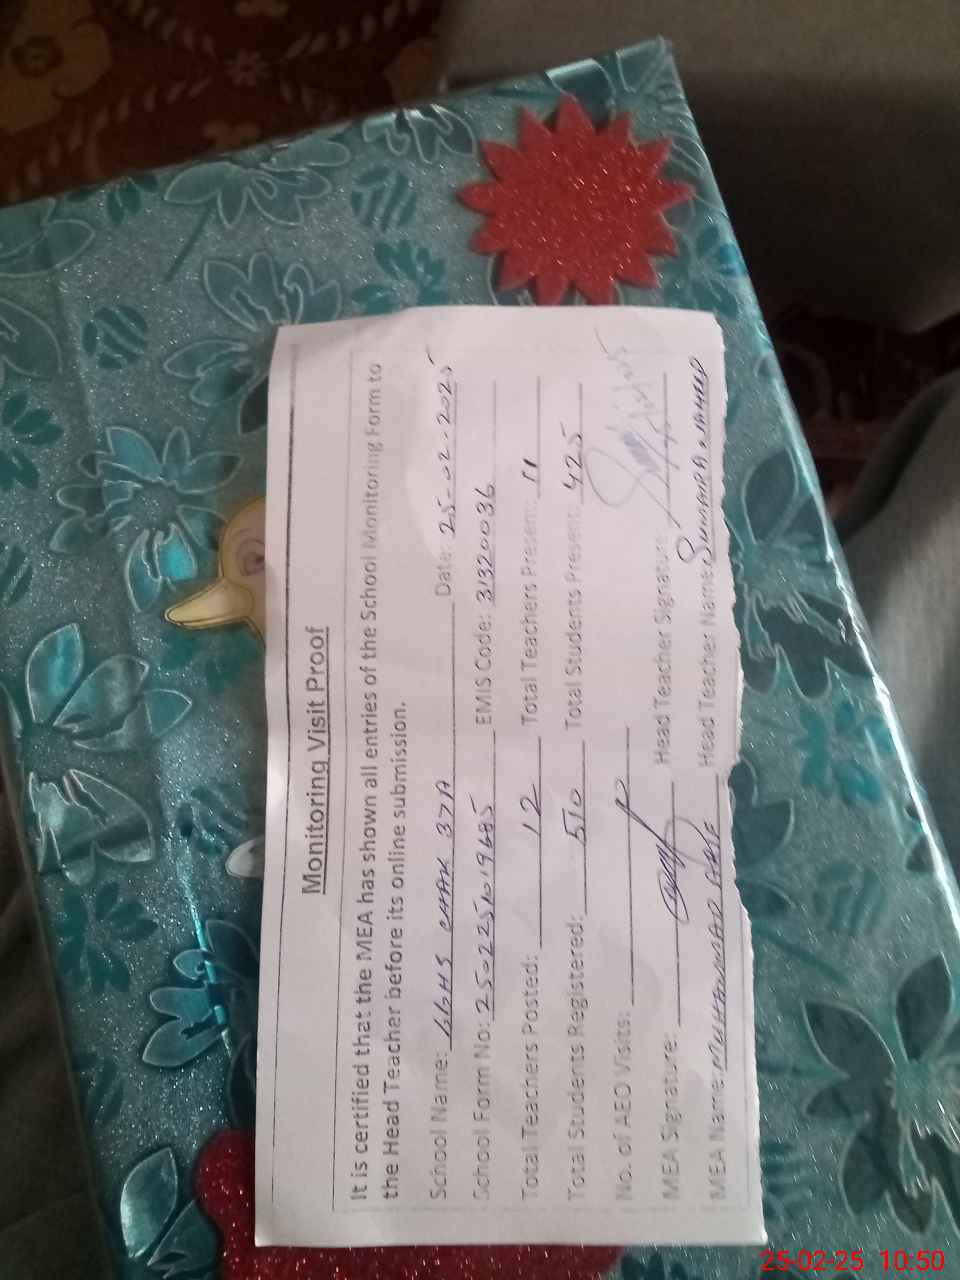 Monitoring Visit Proof
It is certified that the MEA has shown all entries of the School Monitoring Form to
the Head Teacher before its online submission.
School Name: GGHS CHAK 37A Date: 25-02-2025
School Form No: 25-0225N019685 EMIS Code: 31320036
Total Teachers Posted: 12 Total Teachers Present: 11
Total Students Registered: 510 Total Students Present: 425
No. of AEO Visits:
MEA Signature: Head Teacher Signature:
MEA Name: MUHAMMAD Head Teacher Name:
25-02-25 10:50